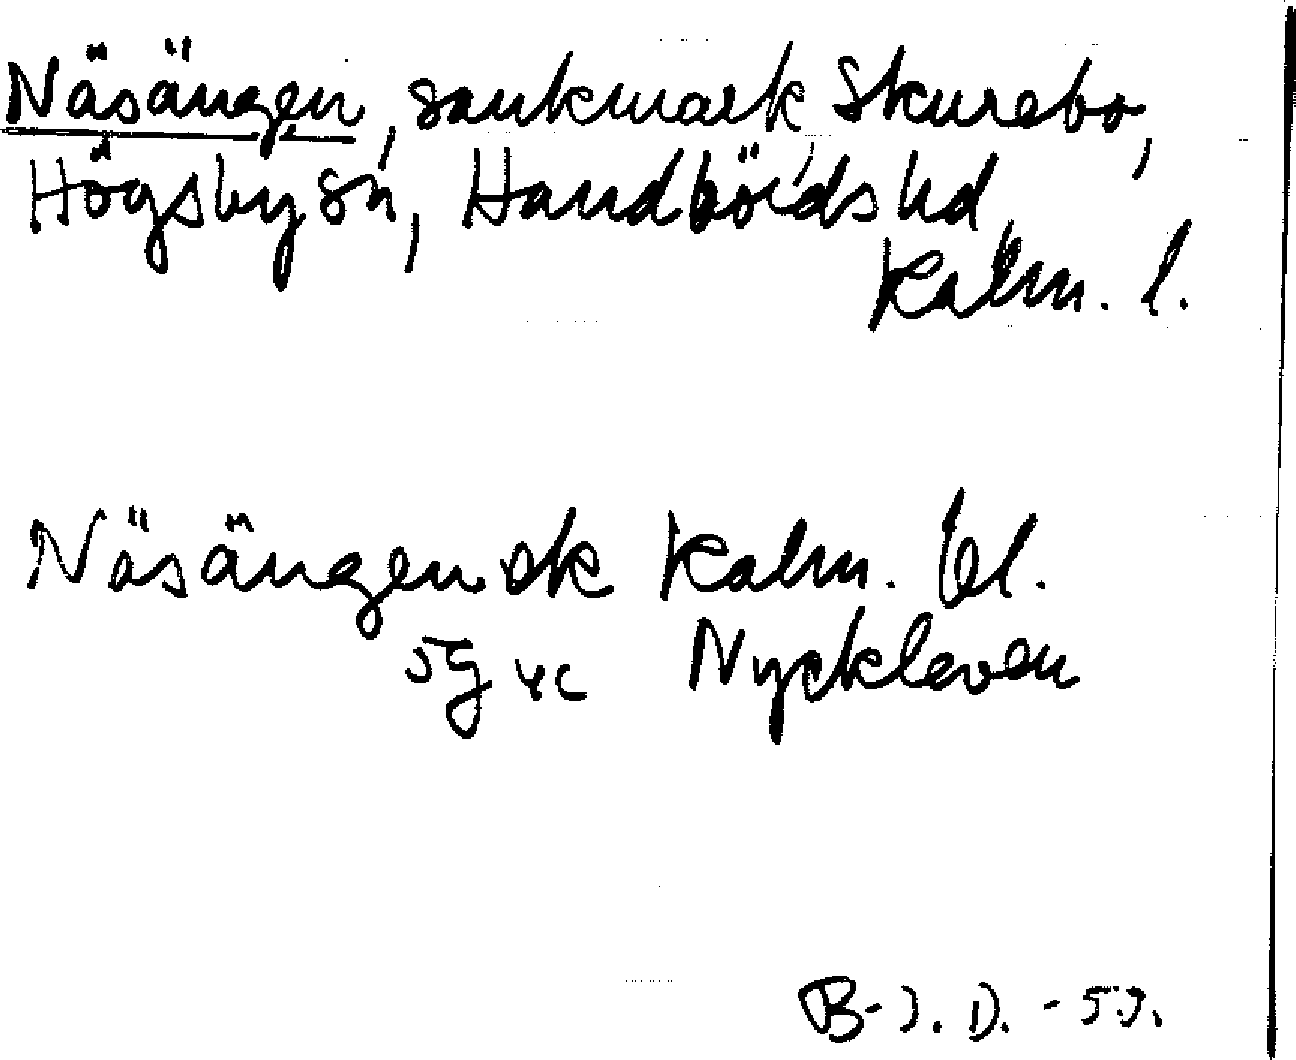 Näsängen, sankmark, Skurebo,
Högsby sn, Handbörds hd,
Kalm. l.
Näsängen ek Kalm. bl.
5G 4c Nyckleven
B-J. D. -59.